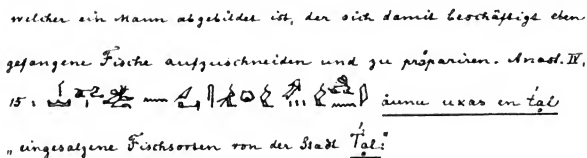 welcher ein Mann abgebildet ist, der sich damit beschäftigt eben
gefangene Fische aufzuschneiden und zu präpariren. Anast. IV,
15: áunu uxas en ťal
„eingesalzene Fischsorten von der Stadt Ťal:"